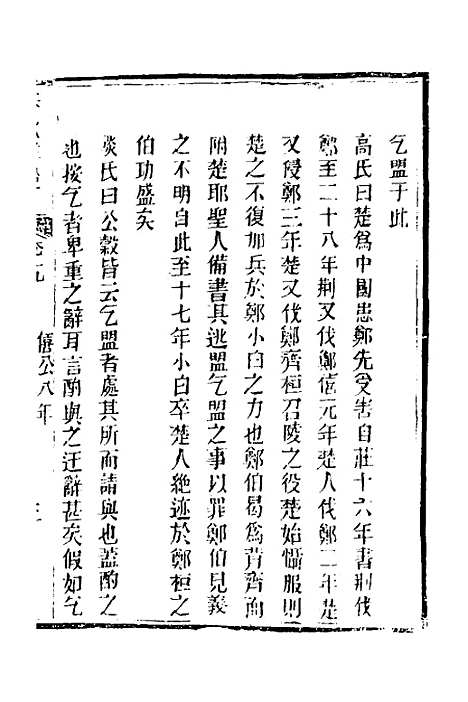 乞盟于此
高氏曰楚爲中國患鄭先受害自莊十六年書荆伐
鄭至二十八年荆又伐鄭僖元年楚人伐鄭二年楚
又侵鄭三年楚又伐鄭齊桓召陵之役楚始懾服則
楚之不復加兵於鄭小白之力也鄭伯曷爲背齊而
附楚耶聖人備書其逃盟乞盟之事以罪鄭伯見義
之不明自此至十七年小白卒楚人絶迹於鄭桓之
伯功盛矣
啖氏曰公穀皆云乞盟者處其所而請與也蓋酌之
也按乞者卑重之辭耳言酌與之迂辭甚矣假如乞
卷九 僖公八年